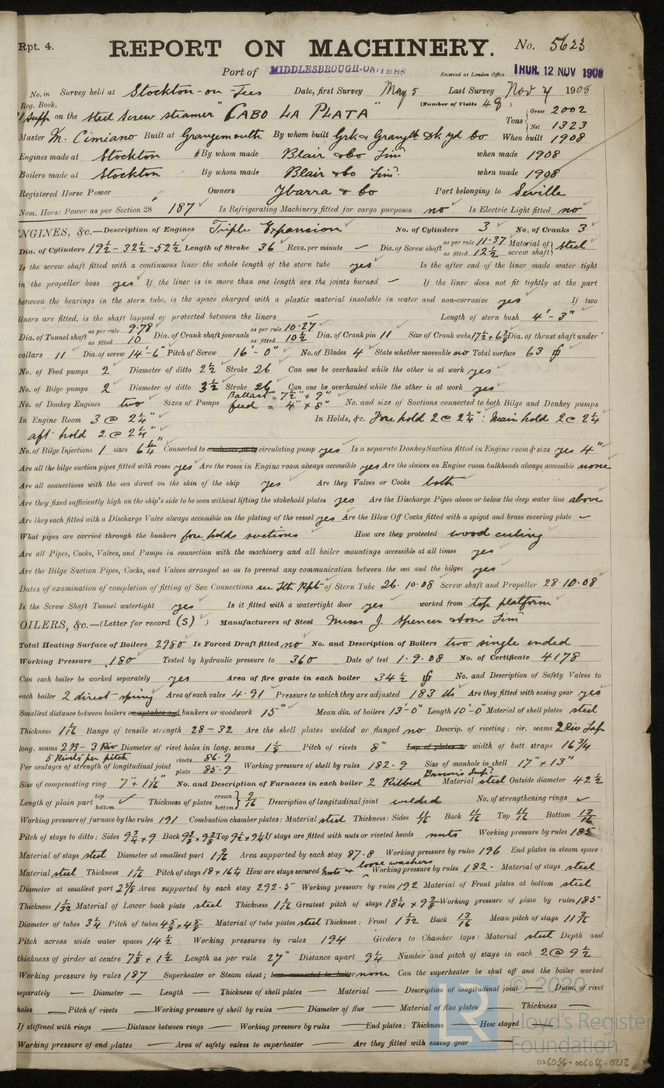 Rpt. 4. REPORT ON MACHINERY. No. 5623
Port of MIDDLESBROUGH-ON-TEES Received at London Office THUR. 12 NOV 1908
No. in Survey held at Stockton-on Tees Date, first Survey May 5 Last Survey Nov 4 1908
Reg. Book. (Number of Visits 49)
on the Steel Screw Steamer "CABO LA PLATA" Tons Gross 2002 Net 1323
Master M. Cimiano Built at Grangemouth By whom built Grk & Grangth Dkyd Co When built 1908
Engines made at Stockton By whom made Blair & Co Limd when made 1908
Boilers made at Stockton By whom made Blair & Co Limd when made 1908
Registered Horse Power Owners Ybarra & Co Port belonging to Seville
Nom. Horse Power as per Section 28 187 Is Refrigerating Machinery fitted for cargo purposes no Is Electric Light fitted no
ENGINES, &c.—Description of Engines Triple Expansion No. of Cylinders 3 No. of Cranks 3
Dia. of Cylinders 19½ - 32½ - 52½ Length of Stroke 36 Revs. per minute — Dia. of Screw shaft as per rule 11.37 as fitted 12½ Material of screw shaft steel
Is the screw shaft fitted with a continuous liner the whole length of the stern tube yes Is the after end of the liner made water tight
in the propeller boss yes If the liner is in more than one length are the joints burned — If the liner does not fit tightly at the part
between the bearings in the stern tube, is the space charged with a plastic material insoluble in water and non-corrosive yes If two
liners are fitted, is the shaft lapped or protected between the liners — Length of stern bush 4'-3"
Dia. of Tunnel shaft as per rule 9.78 as fitted 10 Dia. of Crank shaft journals as per rule 10.27 as fitted 10½ Dia. of Crank pin 11 Size of Crank webs Dia. of thrust shaft under
collars 11 Dia. of screw 14'-6" Pitch of Screw 16'-0" No. of Blades 4 State whether moveable no Total surface 63
No. of Feed pumps 2 Diameter of ditto 2½ Stroke 26 Can one be overhauled while the other is at work yes
No. of Bilge pumps 2 Diameter of ditto 3½ Stroke 26 Can one be overhauled while the other is at work yes
No. of Donkey Engines two Sizes of Pumps Ballast = 7½" × 9" feed = 4" × 8" No. and size of Suctions connected to both Bilge and Donkey pumps
In Engine Room 3 @ 2¼" In Holds, &c. Fore hold 2 @ 2¼": Main hold 2 @ 2¼
aft hold 2 @ 2¼"
No. of Bilge Injections 1 sizes Connected to circulating pump yes Is a separate Donkey Suction fitted in Engine room & size yes 4"
Are all the bilge suction pipes fitted with roses yes Are the roses in Engine room always accessible yes Are the sluices on Engine room bulkheads always accessible none
Are all connections with the sea direct on the skin of the ship yes Are they Valves or Cocks both
Are they fixed sufficiently high on the ship's side to be seen without lifting the stokehold plates yes Are the Discharge Pipes above or below the deep water line above
Are they each fitted with a Discharge Valve always accessible on the plating of the vessel yes Are the Blow Off Cocks fitted with a spigot and brass covering plate —
What pipes are carried through the bunkers fore holds suctions How are they protected wood ceiling
Are all Pipes, Cocks, Valves, and Pumps in connection with the machinery and all boiler mountings accessible at all times yes
Are the Bilge Suction Pipes, Cocks, and Valves arranged so as to prevent any communication between the sea and the bilges yes
Dates of examination of completion of fitting of Sea Connections see Rpt of Stern Tube 26.10.08 Screw shaft and Propeller 28.10.08
Is the Screw Shaft Tunnel watertight yes Is it fitted with a watertight door yes worked from top platform
OILERS, &c.—(Letter for record (S)) Manufacturers of Steel Messrs J. Spencer & Son Limd
Total Heating Surface of Boilers 2980 Is Forced Draft fitted no No. and Description of Boilers two single ended
Working Pressure 180 Tested by hydraulic pressure to 360 Date of test 1.9.08 No. of Certificate 4178
Can each boiler be worked separately yes Area of fire grate in each boiler 34½ No. and Description of Safety Valves to
each boiler 2 direct spring Area of each valve 4.91 Pressure to which they are adjusted 183 lbs Are they fitted with easing gear yes
Smallest distance between boilers or uptakes and bunkers or woodwork 15" Mean dia. of boilers 13'-0" Length 10'-0" Material of shell plates steel
Thickness 1 1/16 Range of tensile strength 28-32 Are the shell plates welded or flanged no Descrip. of riveting: cir. seams 2 Riv Lap
long. seams Diameter of rivet holes in long. seams 1⅛ Pitch of rivets 8" Lap of plates or width of butt straps 16¾
5 Rivets per pitch
Per centages of strength of longitudinal joint rivets 86.9 plate 85.9 Working pressure of shell by rules 182.9 Size of manhole in shell 17" × 13"
Size of compensating ring No. and Description of Furnaces in each boiler 2 Ribbed Material steel Outside diameter 42½
Length of plain part top bottom Thickness of plates crown bottom 9/16 Description of longitudinal joint welded No. of strengthening rings
Working pressure of furnace by the rules 191 Combustion chamber plates: Material steel Thickness: Sides 11/16 Back 11/16 Top 11/16 Bottom
Pitch of stays to ditto: Sides 9¾ × 9 Back Top If stays are fitted with nuts or riveted heads nuts Working pressure by rules 185
Material of stays steel Diameter at smallest part Area supported by each stay 87.8 Working pressure by rules 196 End plates in steam space:
Material steel Thickness Pitch of stays 18 × 16¼ How are stays secured nuts & loose washers Working pressure by rules 182. Material of stays steel
Diameter at smallest part Area supported by each stay 292.5 Working pressure by rules 192 Material of Front plates at bottom steel
Thickness Material of Lower back plate steel Thickness Greatest pitch of stays Working pressure of plate by rules 185
Diameter of tubes 3¼ Pitch of tubes Material of tube plates steel Thickness: Front Back 13/16 Mean pitch of stays
Pitch across wide water spaces 14½ Working pressures by rules 194 Girders to Chamber tops: Material steel Depth and
thickness of girder at centre Length as per rule 27" Distance apart 9¼ Number and pitch of stays in each 2 @ 9½
Working pressure by rules 187 Superheater or Steam chest; how connected to boiler none Can the superheater be shut off and the boiler worked
separately — Diameter — Length — Thickness of shell plates — Material — Description of longitudinal joint — Diam. of rivet
holes — Pitch of rivets — Working pressure of shell by rules — Diameter of flue — Material of flue plates — Thickness —
If stiffened with rings — Distance between rings — Working pressure by rules — End plates: Thickness — How stayed —
Working pressure of end plates — Area of safety valves to superheater — Are they fitted with easing gear —
© 2020
Lloyd's Register
Foundation
006086-006088-0212